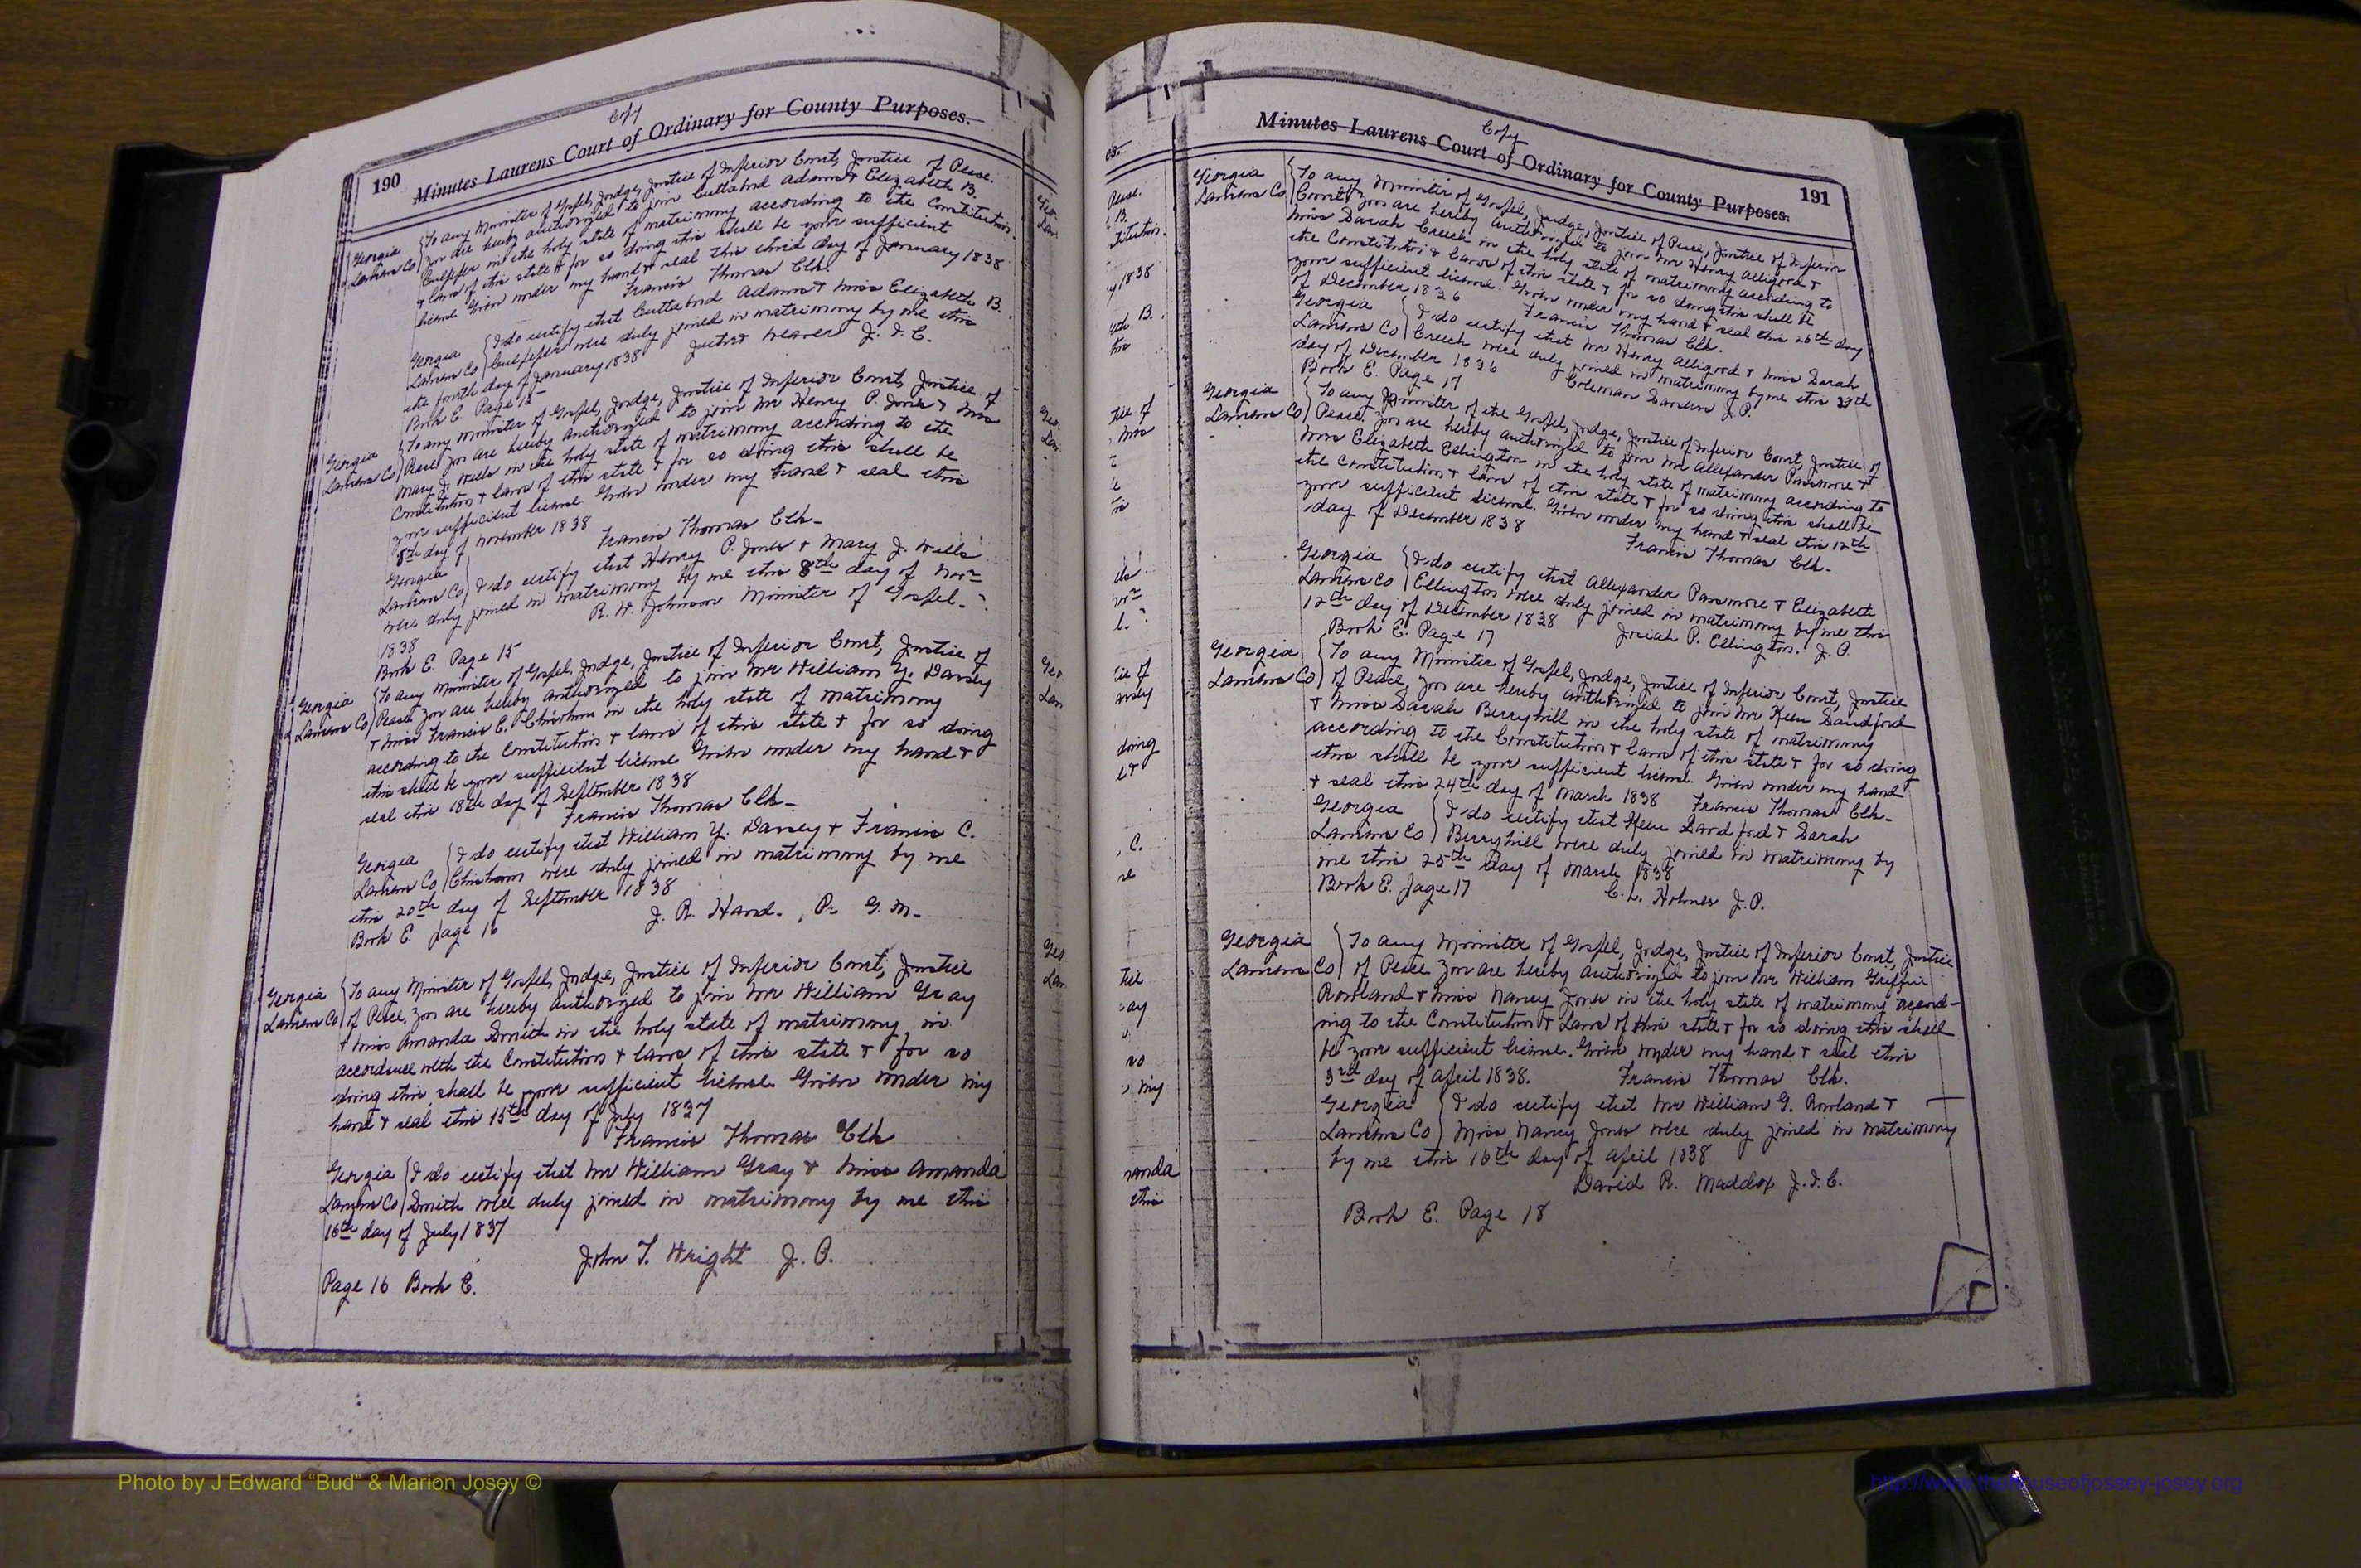 Copy
190 Minutes Laurens Court of Ordinary for County Purposes.
Georgia To any Minister of Gospel, Judge, Justice of Inferior Court, Justice of Peace.
Laurens Co you are hereby authorized to join Cuttabnd Adams & Elizabeth B.
Culpeper in the holy state of matrimony according to the Constitution
& laws of this state & for so doing this shall be your sufficient
license Given under my hand & seal this third day of January 1838
Francis Thomas Clk.
Georgia I do certify that Cuttabnd Adams & Miss Elizabeth B.
Laurens Co Culpeper were duly joined in matrimony by me this
the fourth day of January 1838 Weaver J. I. C.
Book E Page 15
Georgia To any Minister of Gospel, Judge, Justice of Inferior Court, Justice of
Laurens Co Peace you are hereby authorized to join Mr Henry P. Jones & Miss
Mary J. Wells in the holy state of matrimony according to the
Constitution & laws of this state & for so doing this shall be
your sufficient license Given under my hand & seal this
8th day of November 1838 Francis Thomas Clk-
Georgia
Laurens Co I do certify that Henry P. Jones & Mary J. Wells
were duly joined in matrimony by me this 8th day of Novr
1838 R. W. Johnson Minister of Gospel-
Book E. Page 15
Georgia To any Minister of Gospel, Judge, Justice of Inferior Court, Justice of
Laurens Co Peace you are hereby authorized to join Mr William Y. Darsey
& Miss Francis C. Chisham in the holy state of matrimony
according to the Constitution & laws of this state & for so doing
this shall be your sufficient license Given under my hand &
seal this 18th day of September 1838
Francis Thomas Clk-
Georgia I do certify that William Y. Darsey & Francis C.
Laurens Co Chisham were duly joined in matrimony by me
this 20th day of September 1838
Book E page 16 J. R. Hand., P. G. M.
Georgia To any Minister of Gospel, Judge, Justice of Inferior Court, Justice
Laurens Co of Peace, you are hereby authorized to join Mr William Gray
& Miss Amanda Smith in the holy state of matrimony in
accordance with the Constitution & laws of this state & for so
doing this shall be your sufficient license Given under my
hand & seal this 15th day of July 1837
Francis Thomas Clk
Georgia I do certify that Mr William Gray & Miss Amanda
Laurens Co Smith were duly joined in matrimony by me this
16th day of July 1837
John T. Wright J. P.
Page 16 Book E.
Copy
Minutes Laurens Court of Ordinary for County Purposes. 191
Georgia To any Minister of Gospel, Judge, Justice of Peace, Justice of Inferior
Laurens Co Court, you are hereby authorized to join Mr Henry Alligood &
Miss Sarah Creech in the holy state of matrimony according to
the Constitution & laws of this state & for so doing this shall be
your sufficient license. Given under my hand & seal this 26th day
of December 1836 Francis Thomas Clk.
Georgia I do certify that Mr Henry Alligood & Miss Sarah
Laurens Co Creech were duly joined in matrimony by me this 29th
day of December 1836 Coleman Sanders J.P.
Book E. Page 17
Georgia To any Minister of the Gospel, Judge, Justice of Inferior Court, Justice of
Laurens Co Peace. you are hereby authorized to join Mr Allexander Passmore &
Miss Elizabeth Ellington in the holy state of matrimony according to
the Constitution & laws of this state & for so doing this shall be
your sufficient license. Given under my hand & seal this 12th
day of December 1838
Francis Thomas Clk-
Georgia I do certify that Allexander Passmore & Elizabeth
Laurens Co Ellington were duly joined in matrimony by me this
12th day of December 1838
Book E. Page 17 Josiah P. Ellington. J. P.
Georgia To any Minister of Gospel, Judge, Justice of Inferior Court, Justice
Laurens Co of Peace, you are hereby authorized to join Mr Keen Sandford
& Miss Sarah Berryhill in the holy state of matrimony
according to the Constitution & laws of this state & for so doing
this shall be your sufficient license. Given under my hand
& seal this 24th day of March 1838 Francis Thomas Clk-
Georgia I do certify that Keen Sandford & Sarah
Laurens Co Berryhill were duly joined in matrimony by
me this 25th day of March 1838
Book E. page 17 C. L. Holmes J.P.
Georgia To any Minister of Gospel, Judge, Justice of Inferior Court, Justice
Laurens Co of Peace you are hereby authorized to join Mr William Griffin
Rowland & Miss Nancy Jones in the holy state of matrimony accord-
ing to the Constitution & Laws of this state & for so doing this shall
be your sufficient license. Given under my hand & seal this
3rd day of April 1838. Francis Thomas Clk.
Georgia I do certify that Mr William G. Rowland &
Laurens Co Miss Nancy Jones were duly joined in matrimony
by me this 16th day of April 1838
David R. Maddox J.I.C.
Book E. Page 18
Photo by J Edward “Bud” & Marion Josey ©
http://www.thehouseofjossey-josey.org